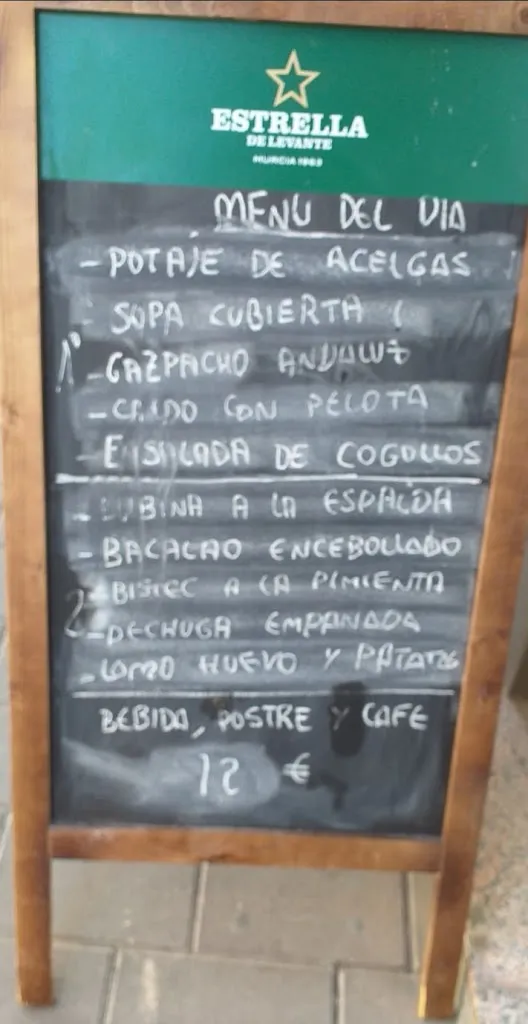 ESTRELLA
DE LEVANTE
MURCIA 1963
MENU DEL DIA
- POTAJE DE ACELGAS
- SOPA CUBIERTA
1º
- GAZPACHO ANDALUZ
- CALDO CON PELOTA
- ENSALADA DE COGOLLOS
- LUBINA A LA ESPALDA
- BACALAO ENCEBOLLADO
- BISTEC A LA PIMIENTA
2º
- PECHUGA EMPANADA
- LOMO HUEVO Y PATATAS
BEBIDA, POSTRE Y CAFE
12 €